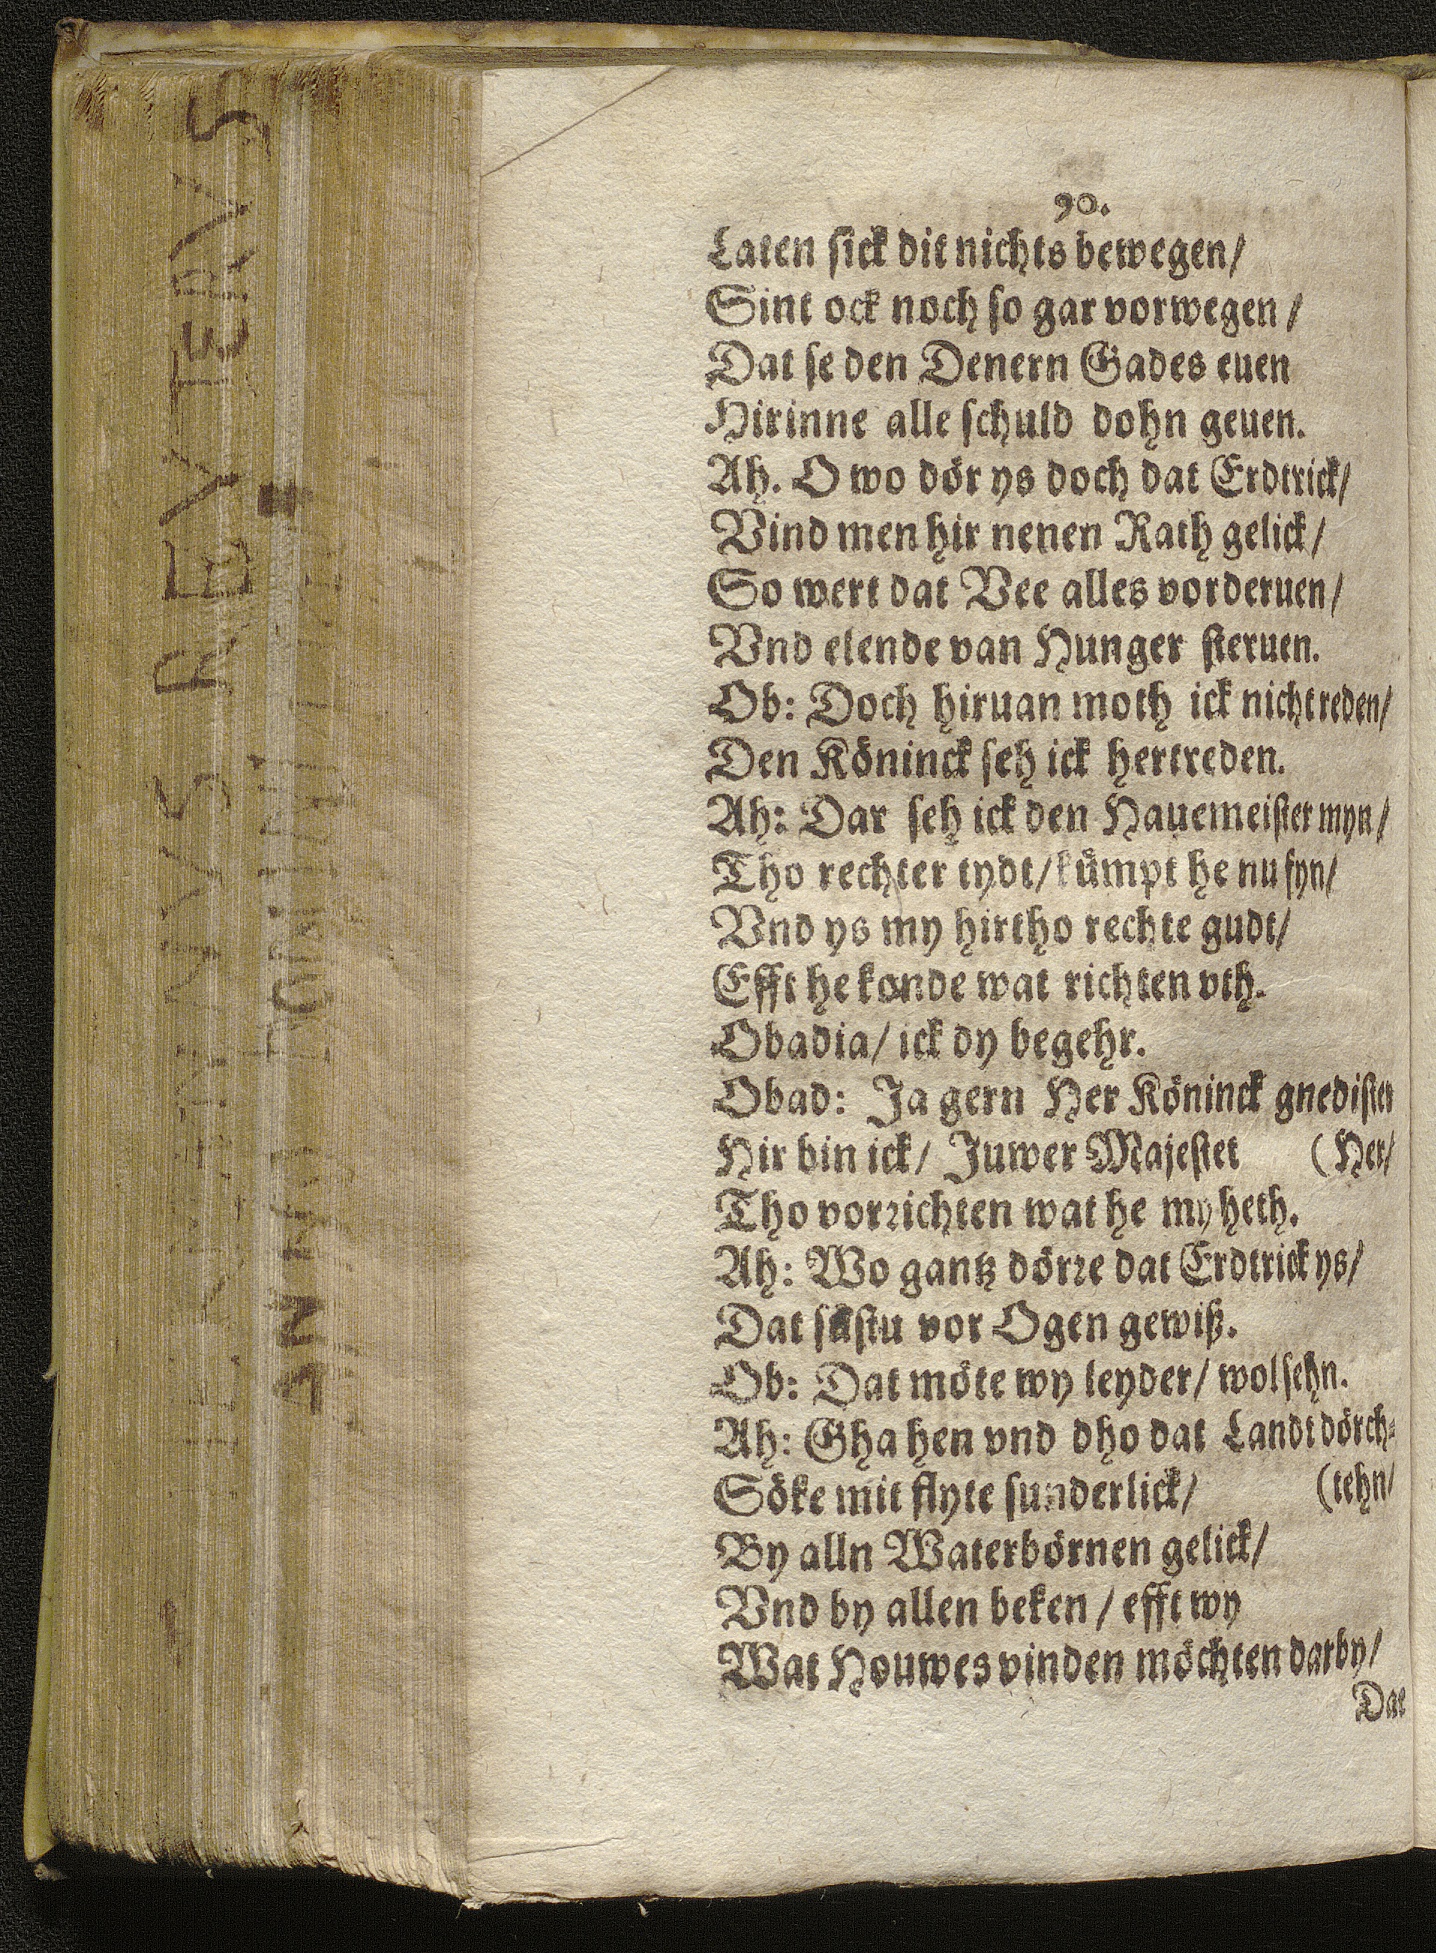 90.
Laten sick dit nichts bewegen/
Sint ock noch so gar vorwegen/
Dat se den Denern Gades euen
Hirinne alle schuld dohn geuen.
Ah. O wo dör ys doch dat Erdtrick/
Vind men hir nenen Rath gelick/
So wert dat Vee alles vorderuen/
Vnd elende van Hunger steruen.
Ob: Doch hiruan moth ick nicht reden/
Den Köninck seh ick hertreden.
Ah: Dar seh ick den Hauemeister myn/
Tho rechter tydt/ kümpt he nu fyn/
Vnd ys my hirtho rechte gudt/
Efft he konde wat richten vth.
Obadia/ ick dy begehr.
Obad: Ja gern Her Köninck gnedister
Hir bin ick/ Juwer Majestet (Her/
Tho vorrichten wat he my heth.
Ah: Wo gantz dörre dat Erdtrick ys/
Dat vor Ogen gewiß.
Ob: Dat möte wy leyder/ wol sehn.
Ah: Gha hen vnd dho dat Landt dörch-
Söke mit flyte sunderlick/ (tehn/
By alln Waterbörnen gelick/
Vnd by allen beken/ efft wy
Wat Houwes vinden möchten darby/
Dat